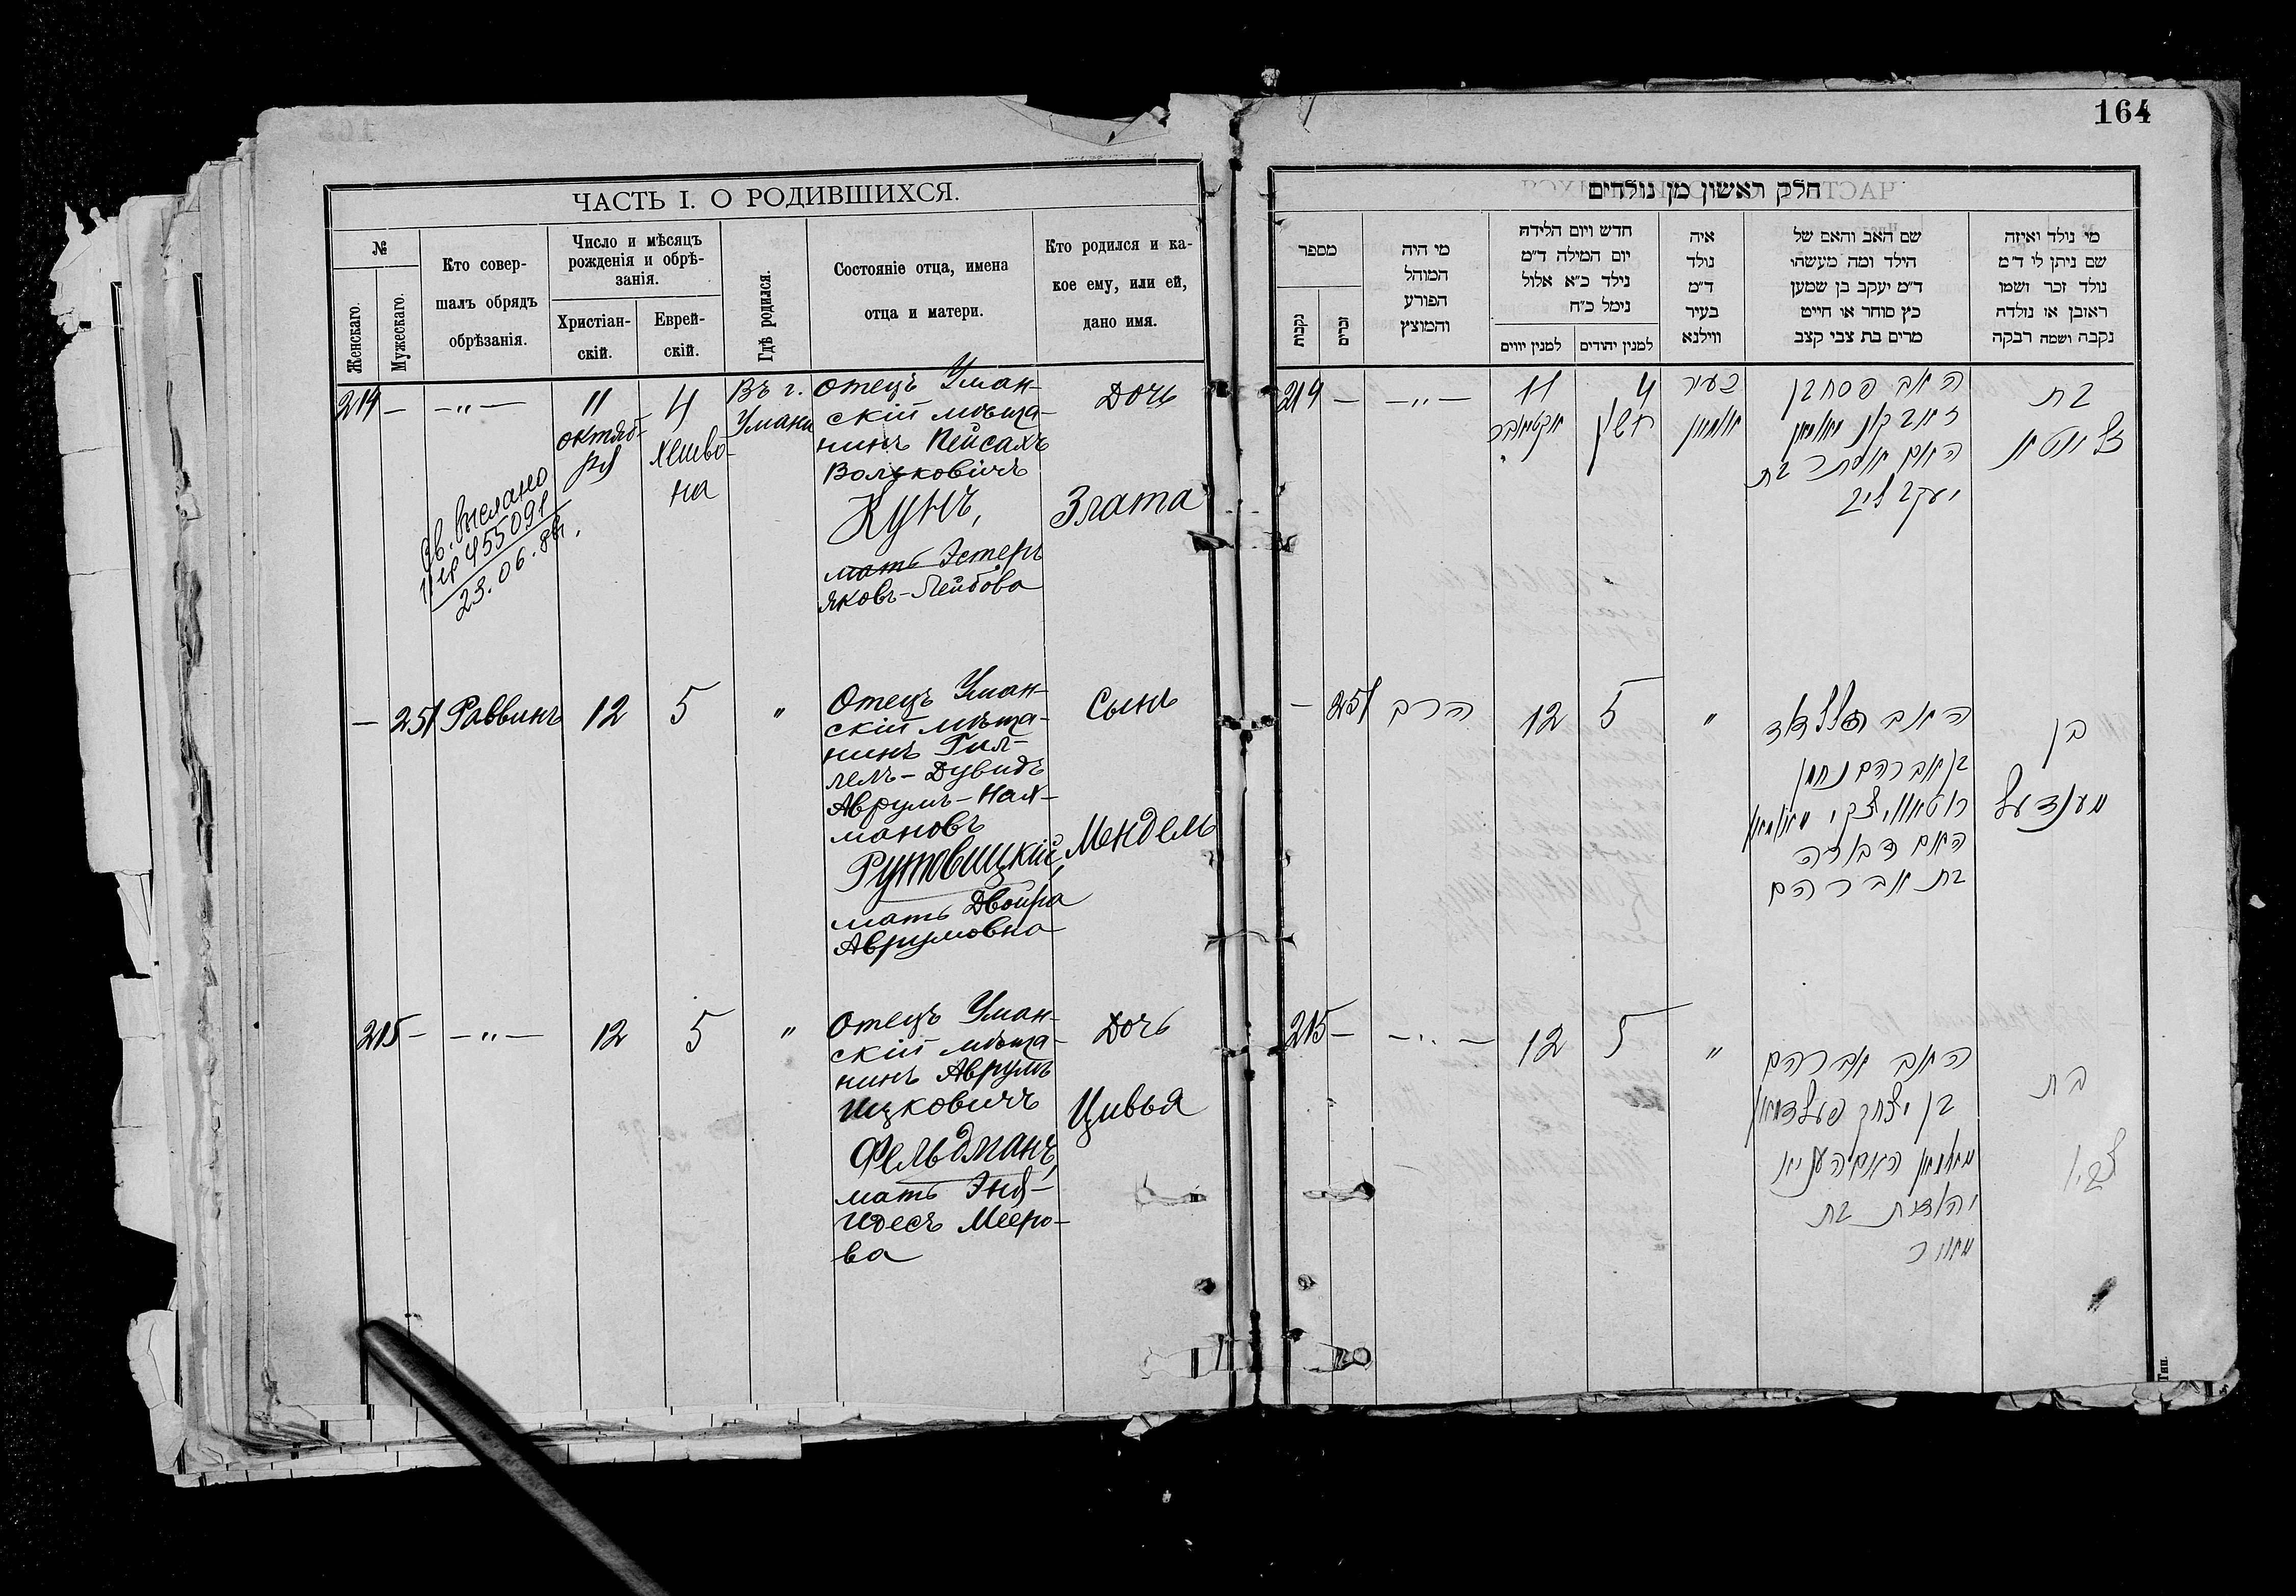 164
ЧАСТЬ I. О РОДИВШИХСЯ.
№
Женскаго.
Мужескаго.
Кто совер-
шалъ обрядъ
обрѣзанія.
Число и мѣсяцъ
рожденія и обрѣ-
занія.
Христіан-
скій.
Еврей-
скій.
Гдѣ родился.
Состояніе отца, имена
отца и матери.
Кто родился и ка-
кое ему, или ей,
дано имя.
214 — — " —
11
октяб-
ря
4
хешво-
на
Въ г.
Умани
Отецъ Уман-
скій мѣща-
нинъ Пейсахъ
Вольковичъ
Кунъ,
мать Эстеръ
Яковъ-Лейбова
Дочь
Злата
Св. выслано
455091
23.06.
— 251 Раввинъ 12 5 "
Отецъ Уман-
скій мѣща-
нинъ Гил-
лель-Дувидъ
Аврумъ-Нах-
мановъ
Рутовицкій,
мать Двойра
Аврумовна
Сынъ
Мендель
215 — — " — 12 5 "
Отецъ Уман-
скій мѣща-
нинъ Аврумъ
Ицковичъ
Фельдманъ,
мать Эня-
Идесъ Мееро-
ва
Дочь
Цивья
חלק ראשון מן נולדים
מספר
נקבות
זכרים
מי היה
המוהל
הפורע
והמוצץ
חדש ויום הלידה
יום המילה ד״מ
נילד כ״א אלול
נימל כ״ח
למנין יווים
למנין יהודים
איה
נולד
ד״מ
בעיר
ווילנא
שם האב והאם של
הילד ומה מעשהו
ד״מ יעקב בן שמען
כץ סוחר או חייט
מרים בת צבי קצב
מי נולד ואיזה
שם ניתן לי ד״מ
נולד זכר ושמו
ראובן או נולדה
נקבה ושמה רבקה
214 — — " —
11
אקטיאבר
4
חשון
בעיר
אומאן
האב פסח בן
זאב קון
האם אסתר בת
יעקב ליב
בת
זלאטא
— 251 הרב 12 5 "
האב הלל דוד
בן אברהם נחמן
האם דבורה
בת אברהם
בן
מענדעל
215 — — " — 12 5 "
האב אברהם
בן יצחק פעלדמאן
בת
מאיר
בת
צביא
Тип.